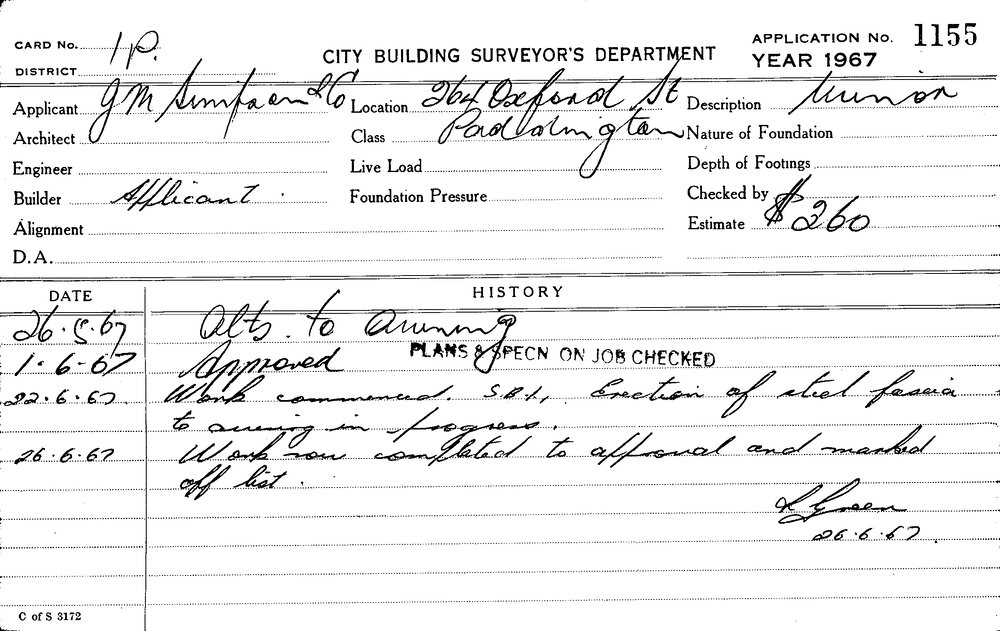 CARD No. 1P.
CITY BUILDING SURVEYOR'S DEPARTMENT
APPLICATION No. 1155
DISTRICT
YEAR 1967
Applicant J M Simpson & Co Location 264 Oxford St Description Minor
Architect Class Paddington Nature of Foundation
Engineer Live Load Depth of Footings
Builder Applicant. Foundation Pressure Checked by
Alignment Estimate $260
D.A.
DATE HISTORY
26.5.67 Alts. to awning
1-6-67 Approved PLANS & SPECN ON JOB CHECKED
22.6.67. Work commenced. Erection of steel fascia
to awning in progress.
26.6.67 Work now completed to approval and marked
off list.
Green
26.6.67.
C of S 3172